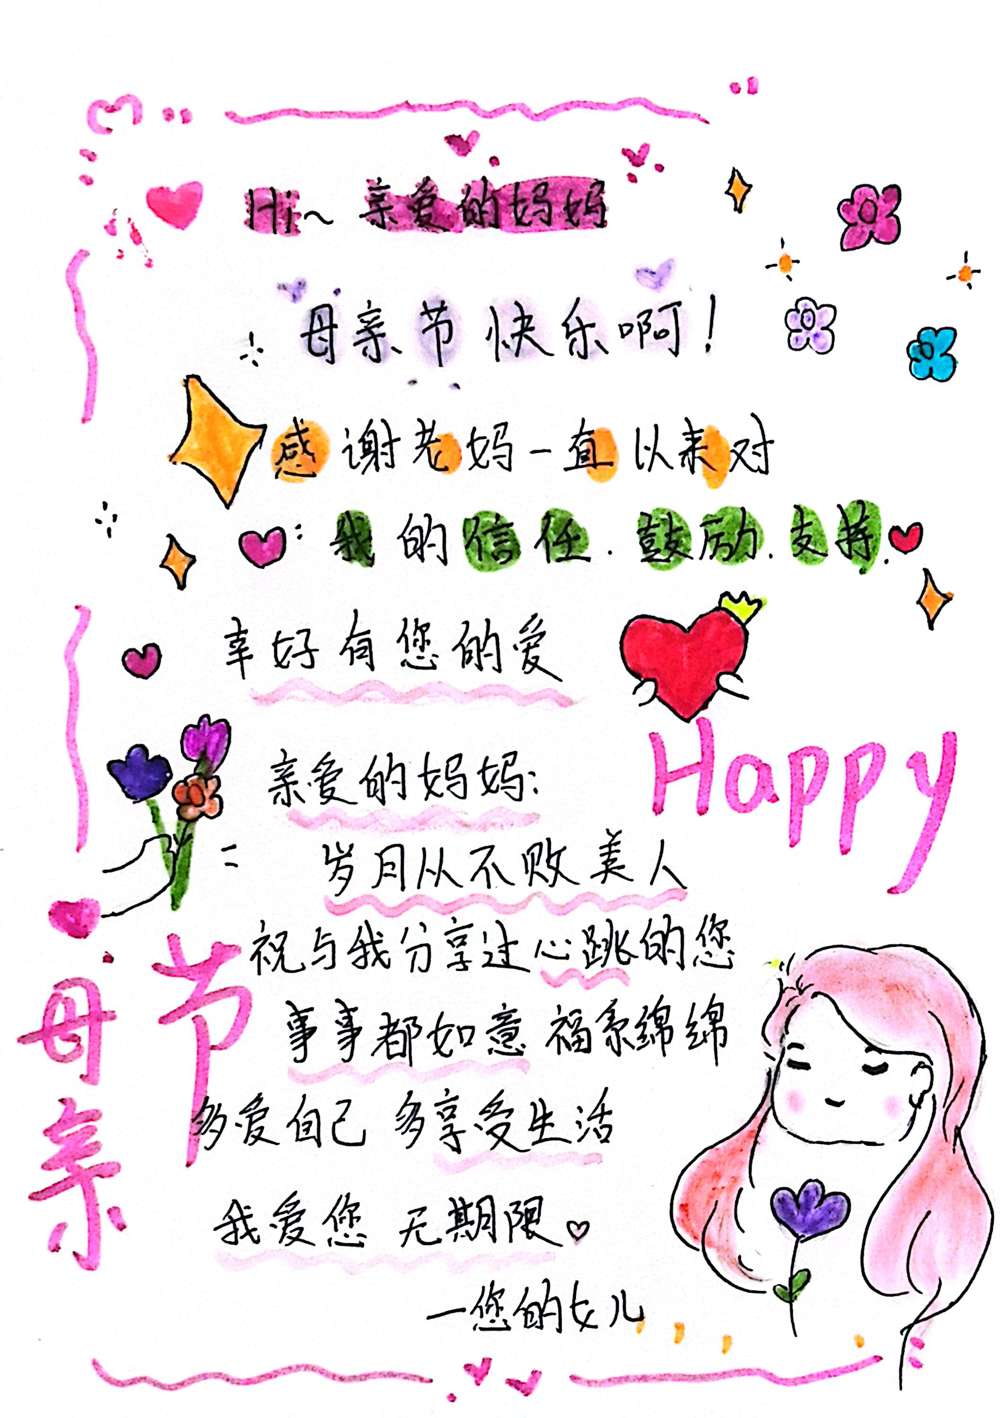 Hi~ 亲爱的妈妈
母亲节快乐啊!
感谢老妈一直以来对
我的信任.鼓励.支持.
幸好有您的爱
Happy
亲爱的妈妈:
岁月从不败美人
祝与我分享过心跳的您
事事都如意 福系绵绵
多爱自己 多享受生活
我爱您 无期限
一您的女儿
母亲
节